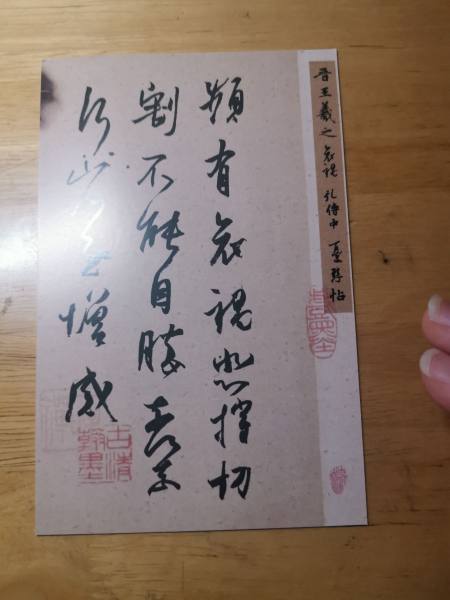 晋王羲之哀禍 孔侍中 憂懸帖
頻有哀禍悲摧切
割不能自勝奈何
省慰增感
古清
翰墨